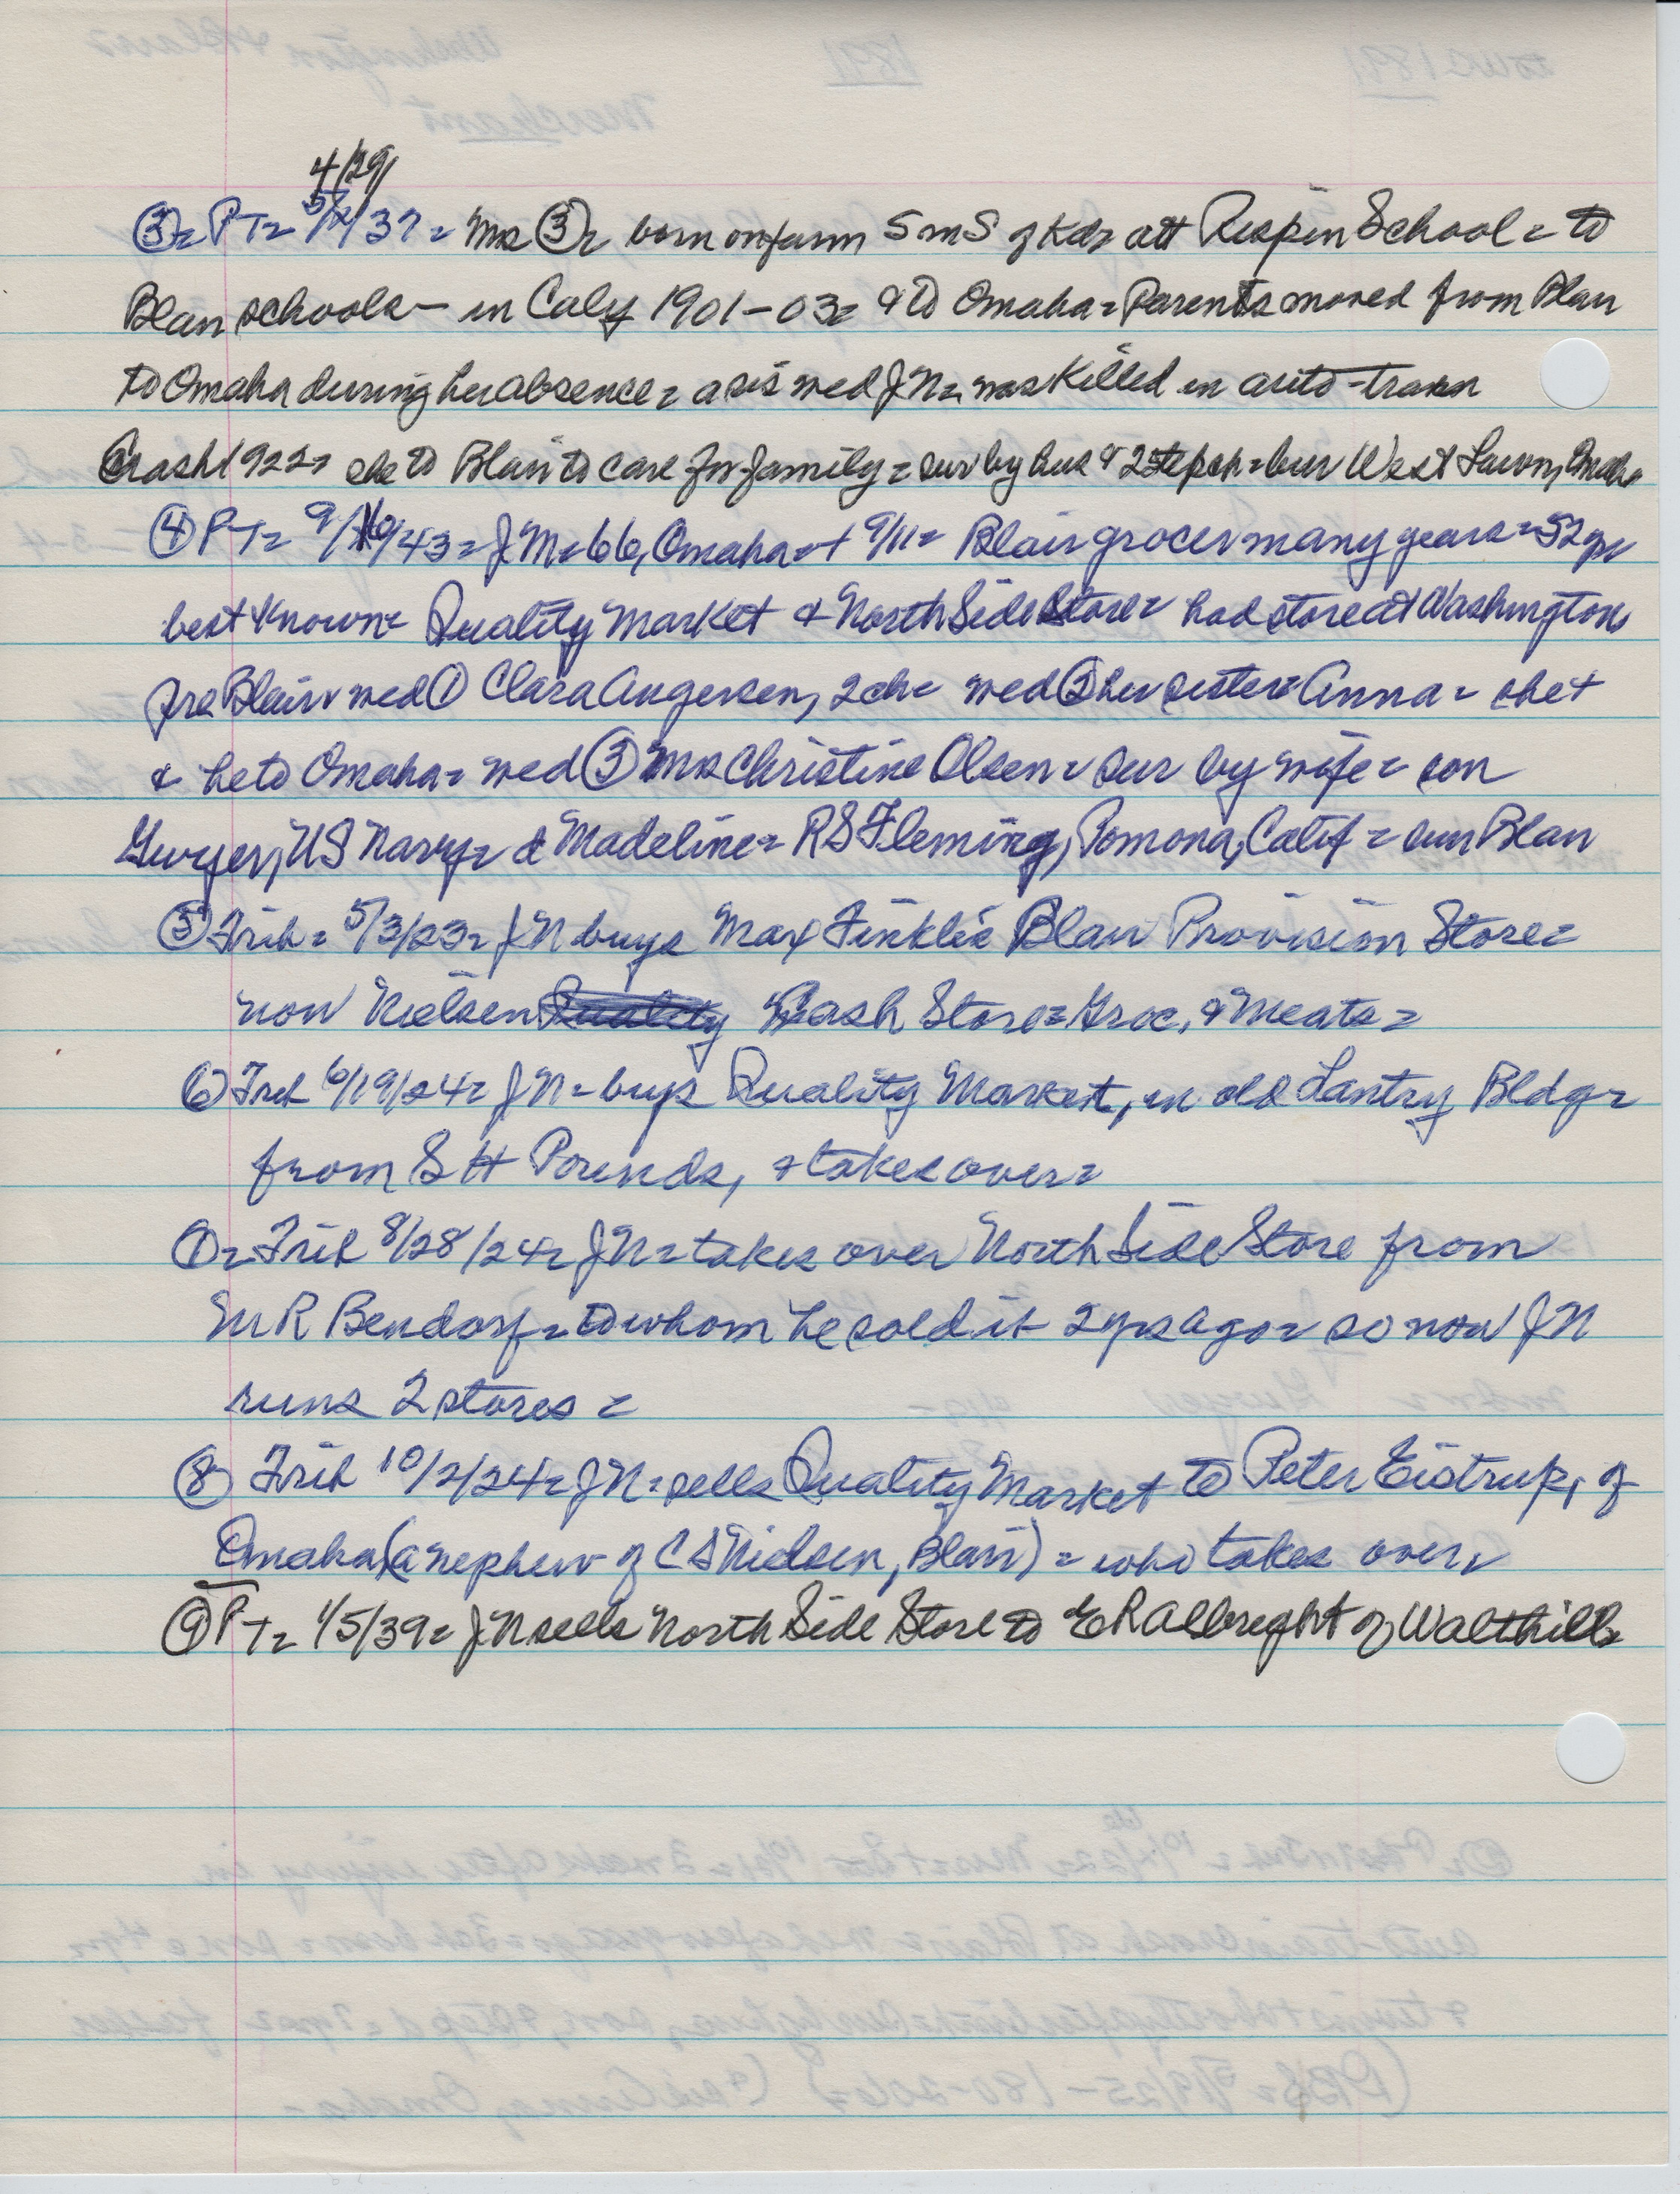 4/29
③= PT= 5/ /37= Mrs ③= born on farm 5 m S of Kd= att Rispin School= to
Blair schools— in Calif 1901-03= & to Omaha= Parents moved from Blair
to Omaha during her absence= a sis wed JN= was killed in auto-train
Crash 1922= she to Blair to care for family= sur by hus & 2 step ch= bur West Lawn, Omaha
④ PT= 9/16/43= JN=66, Omaha=+ 9/11= Blair grocer many years= 52 yrs
best known= Quality Market & North Side Store= had store at Washington
pre Blair= wed ① Clara Augersen, 2 ch= wed ② her sister= Anna= she +
& he to Omaha= wed ③ Mrs Christine Olsen= sur by wife= son
Gwyer, US Navy= d Madeline= R S Fleming, Pomona, Calif= bur Blair
⑤ Trib= 5/3/23= JN buys Max Finkle's Blair Provision Store=
now Nielsen Quality Cash Store= Groc. & Meats=
⑥ Trib 6/19/24= JN= buys Quality Market, in old Lantry Bldg=
from S H Pounds, & takes over=
⑦= Trib 8/28/24= JN= takes over North Side Store from
M R Bendorf= to whom he sold it 2 yrs ago= so now JN
runs 2 stores=
⑧ Trib 10/2/24= JN= sells Quality Market to Peter Eistrup, of
Omaha (a nephew of C S Nielsen, Blair)= who takes over=
⑨ PT= 1/5/39= JN sells North Side Store to E R Albright of Walthill=